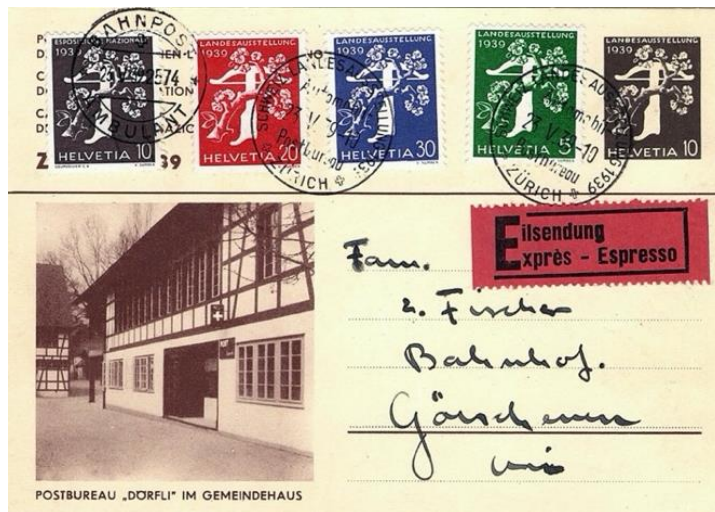 BAHNPOST
AMBULANT
ESPOSIZIONE NAZIONALE
1939
HELVETIA 10
LANDESAUSSTELLUNG
1939
HELVETIA 20
LANDESAUSSTELLUNG
1939
HELVETIA 30
LANDESAUSSTELLUNG
1939
HELVETIA 5
LANDESAUSSTELLUNG
1939
HELVETIA 10
Automobil
23.V.39-10
Postbureau
ZÜRICH
23.V.39-10
ZÜRICH
39
Eilsendung
Exprès - Espresso
Fam.
Fischer
Bahnhof.
Göschenen
POSTBUREAU „DÖRFLI” IM GEMEINDEHAUS